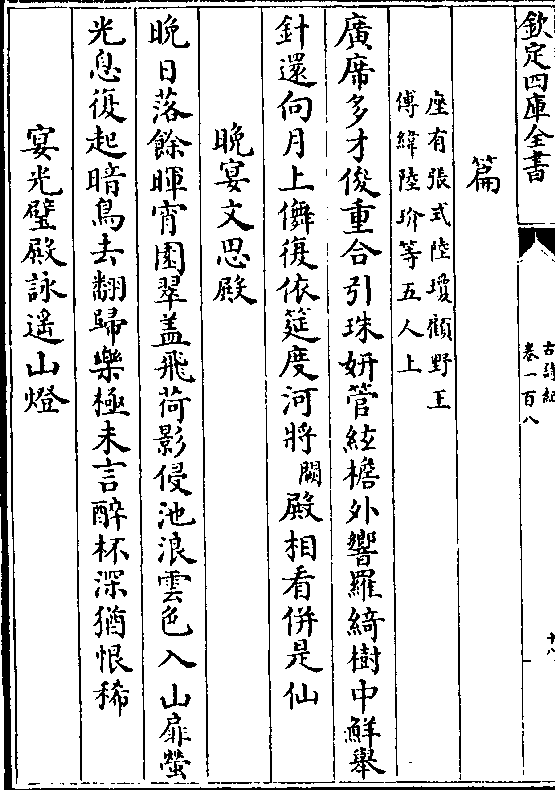 欽定四庫全書
古詩紀
卷一百八
十八
篇
座有張式陸瓊顧野王
傅縡陸玠等五人上
廣席多才俊重合引珠妍管絃檐外響羅綺樹中鮮舉
針還向月上儛復依筵度河將闕殿相看併是仙
晚宴文思殿
晚日落餘暉宵園翠盖飛荷影侵池浪雲色入山扉螢
光息復起暗鳥去翻歸樂極未言醉杯深猶恨稀
宴光璧殿詠遥山燈